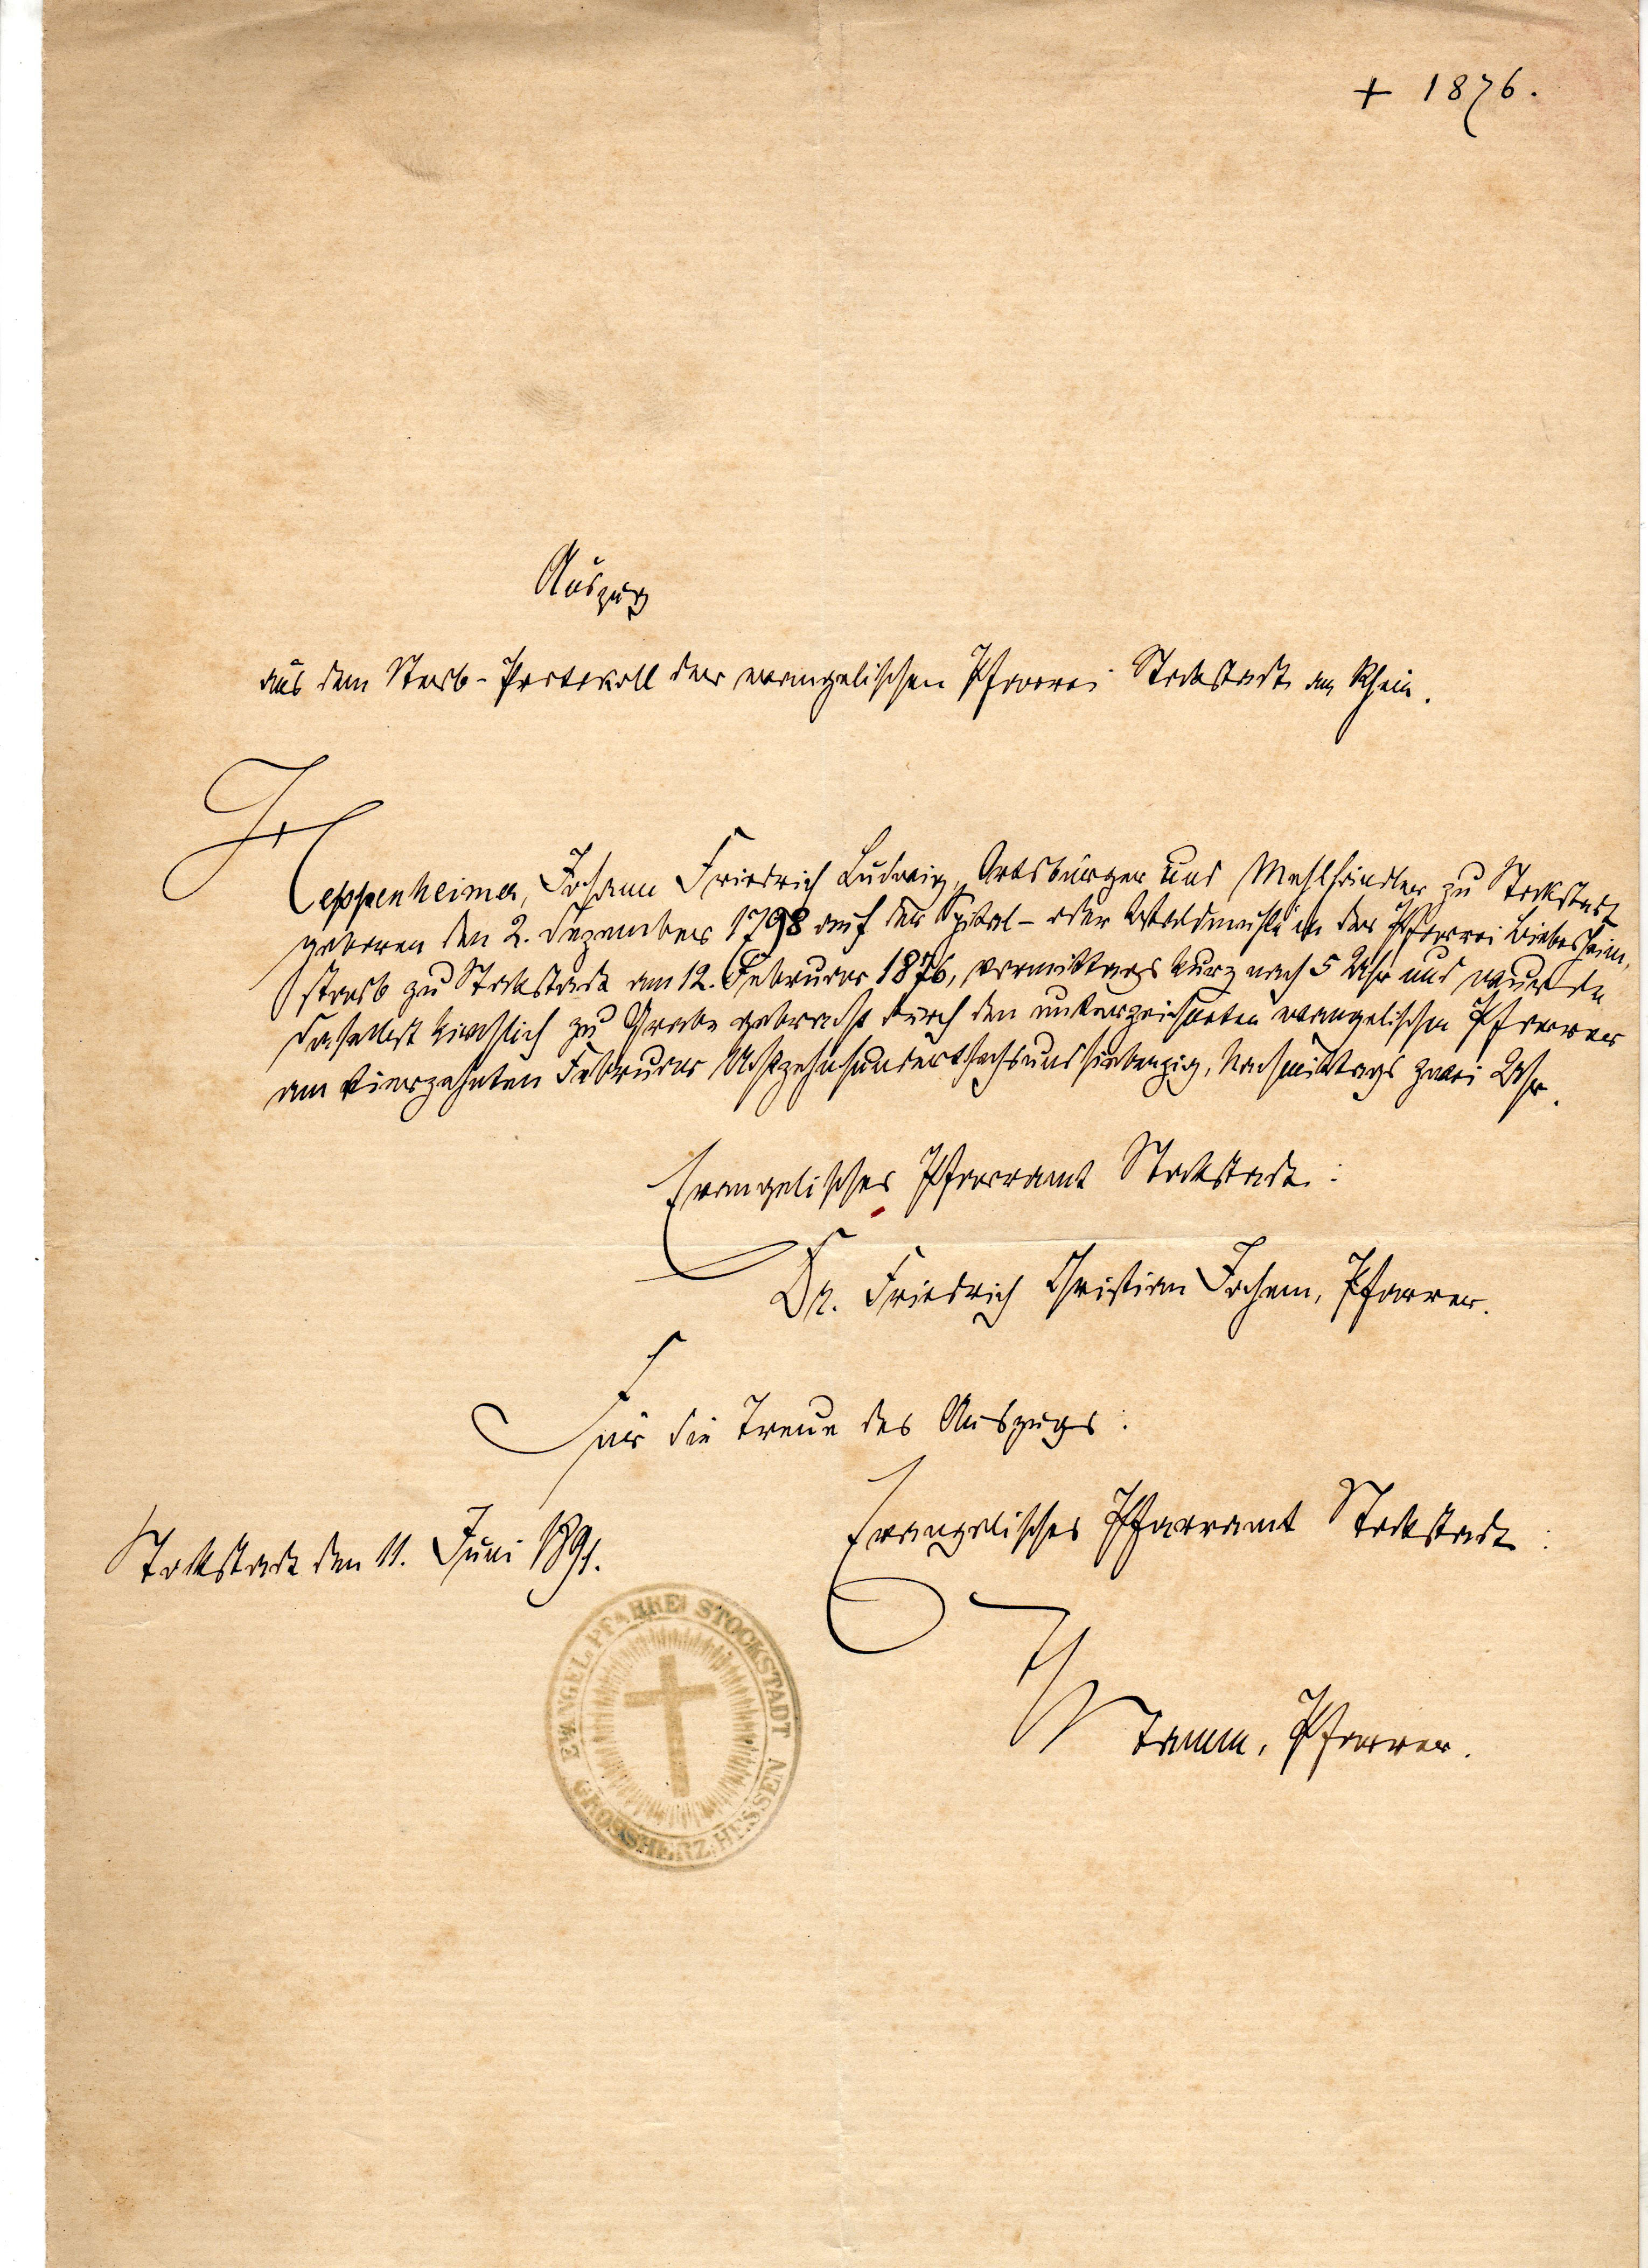 + 1876.
Auszug
aus dem Sterb-Protokoll der evangelischen Pfarrei Stockstadt am Rhein.
Heppenheimer, Johann Friedrich Ludwig, Ortsbürger und Mehlhändler zu Stockstadt
geboren den 2. Dezember 1798 auf der Spital- oder Waldmühle in der Pfarrei Biebesheim,
starb zu Stockstadt am 12. Februar 1876, vormittags kurz nach 5 Uhr und wurde
daselbst kirchlich zu Grabe gebracht durch den unterzeichneten evangelischen Pfarrer
am vierzehnten Februar Achtzehnhundertsechsundsiebenzig, Nachmittags zwei Uhr.
Evangelisches Pfarramt Stockstadt:
Dr. Friedrich Christian Jochem, Pfarrer.
Für die Treue des Auszugs:
Stockstadt den 11. Juni 1891.
Evangelisches Pfarramt Stockstadt:
Stamm, Pfarrer.
EVANGEL. PFARREI STOCKSTADT
GROSSHERZ. HESSEN